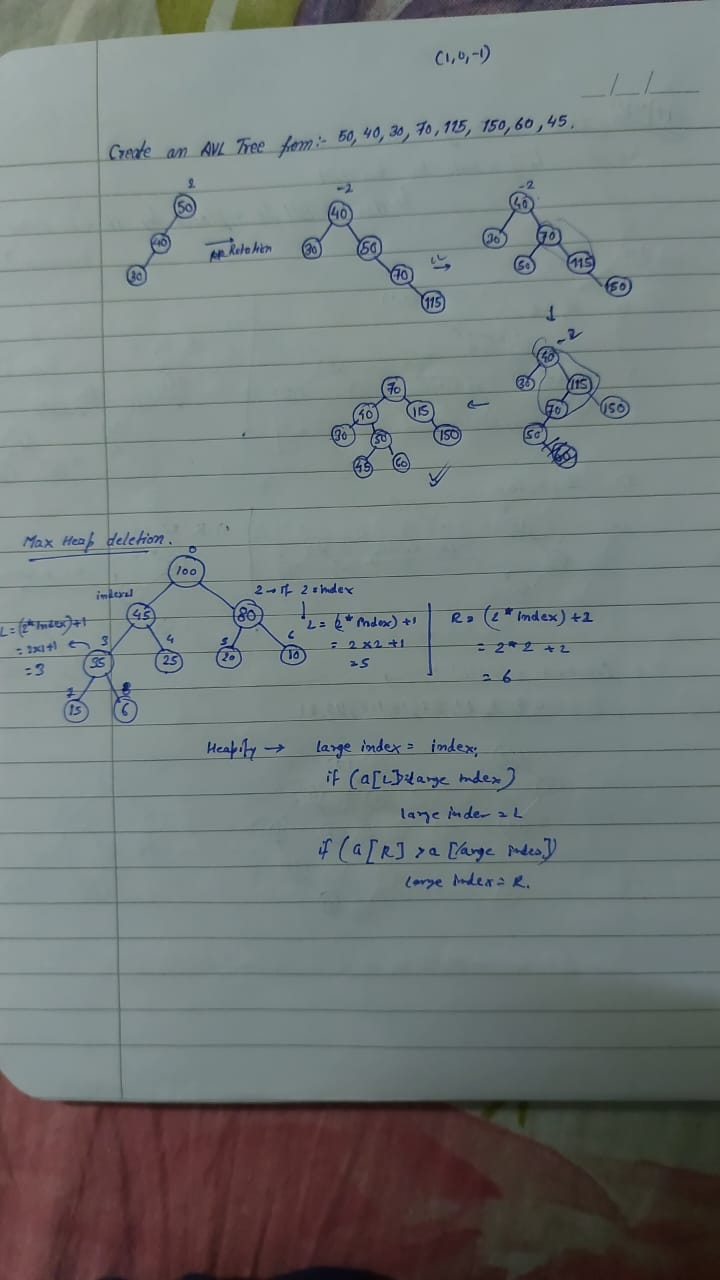 (1,0,-1)
Create an AVL Tree from:- 50, 40, 30, 70, 115, 150, 60, 45.
2
50
40
30
Rotation
-2
40
30 50
70
115
-2
40
30 70
50 115
150
-2
40
30 115
70 150
50
70
40 115
30 50 150
45 60
Max Heap deletion.
0
100
index1
45
2 → If 2 = index
80
L = (2* Index)+1
= 2x1+1
= 3
3
35
4
25
5
20
6
10
7
15
8
6
L = (2* Index) +1
= 2 x 2 +1
= 5
R = (2* Index) +2
= 2*2 +2
= 6
Heapify → large index = index;
if (a[L] large index)
large index = L
if (a[R] > a [large index])
large index = R.